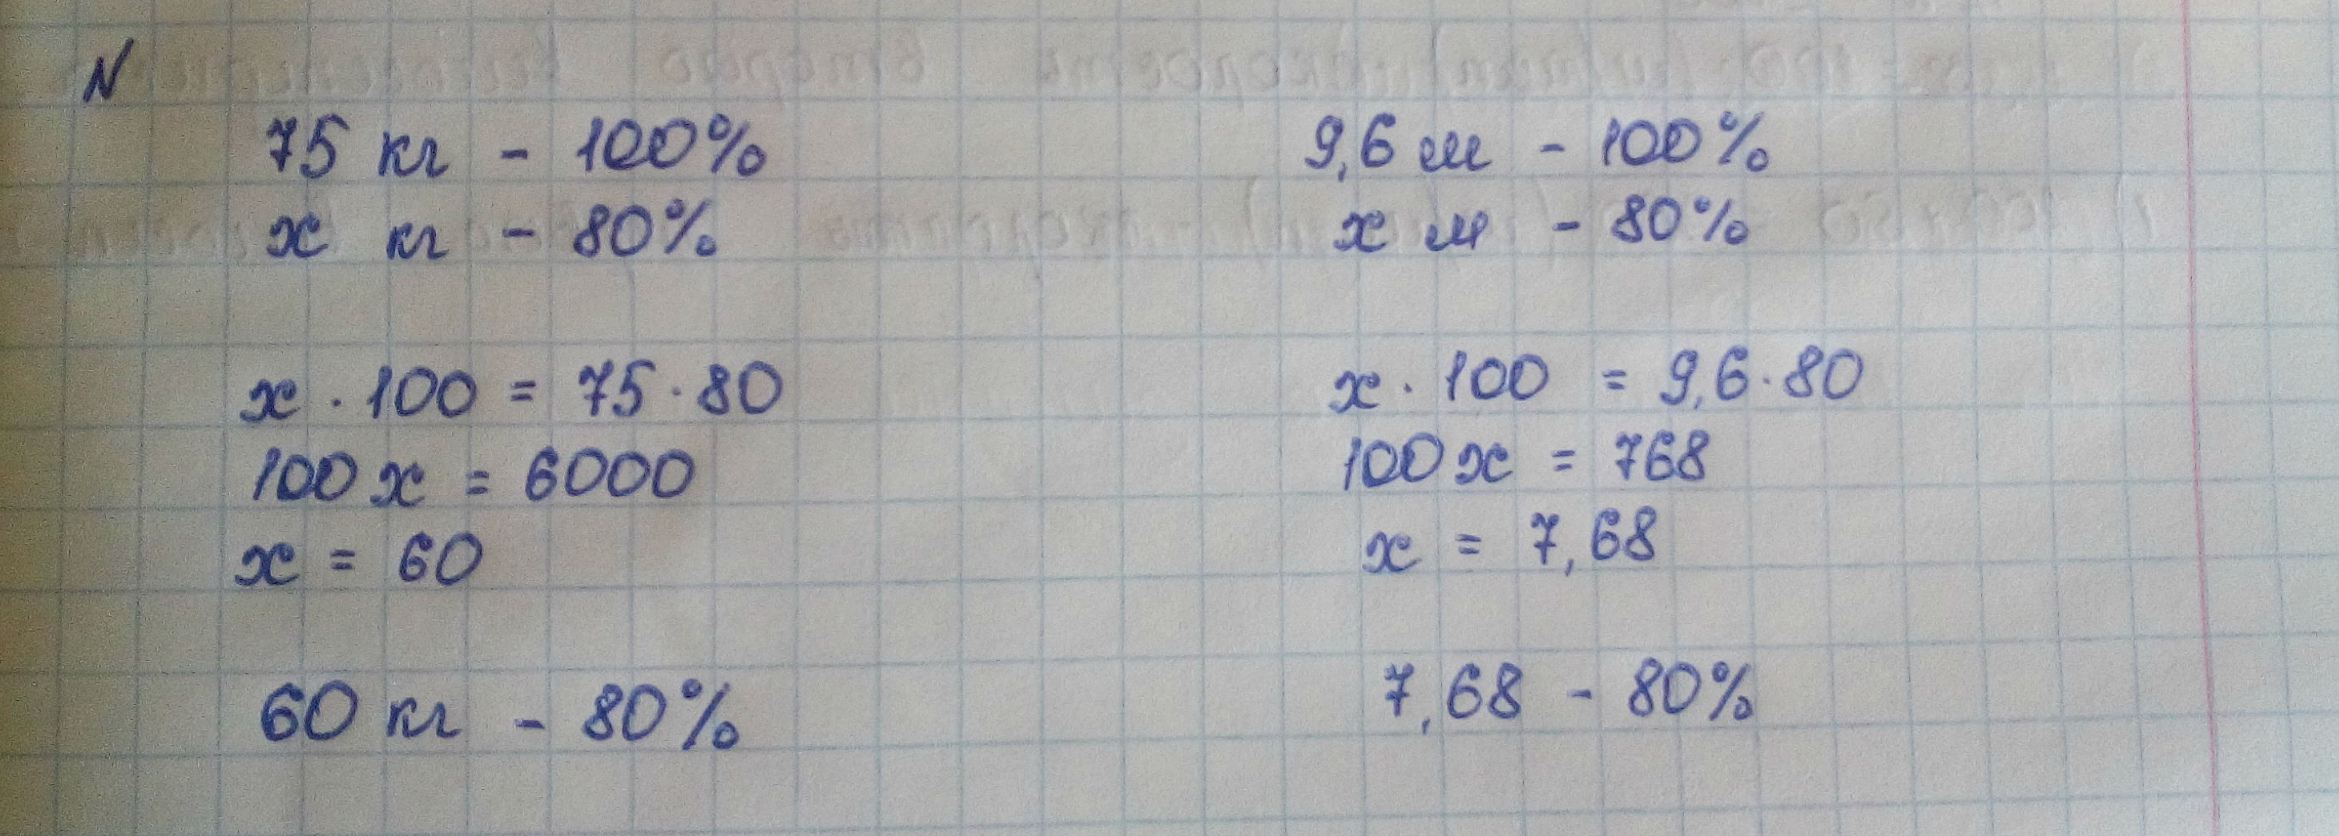 N
75 кг - 100%
x кг - 80%
x · 100 = 75 · 80
100x = 6000
x = 60
60 кг - 80%
9,6 м - 100%
x м - 80%
x · 100 = 9,6 · 80
100x = 768
x = 7,68
7,68 - 80%